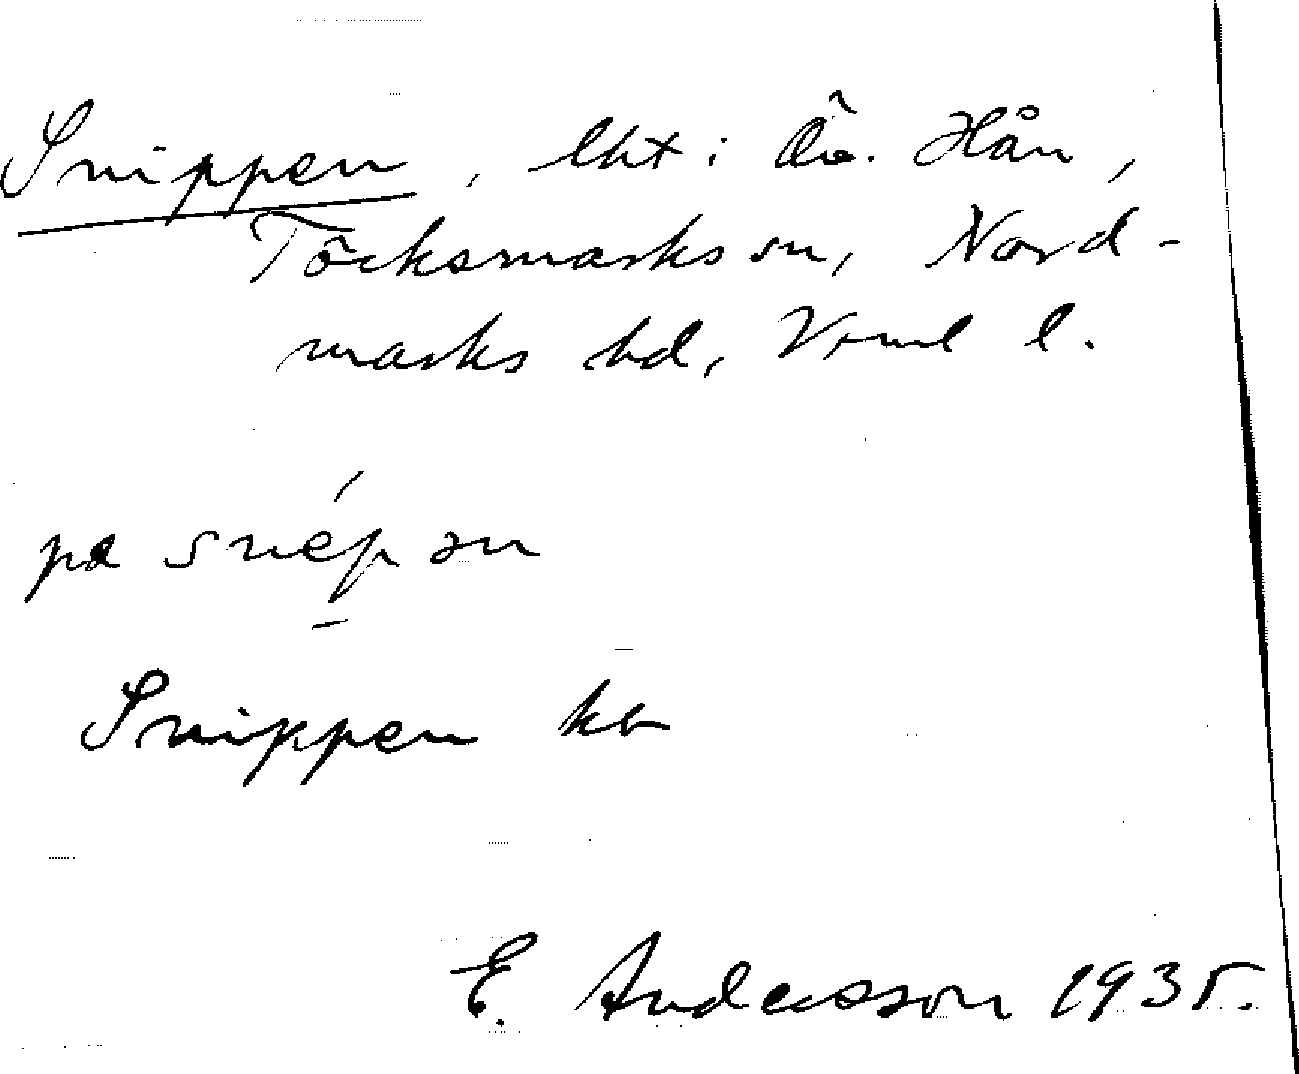 Snippen, lht i Ö. Hån,
Töcksmarks sn, Nord-
marks hd, Vrml l.
på snép ən
Snippen kb
E. Andersson 1935.